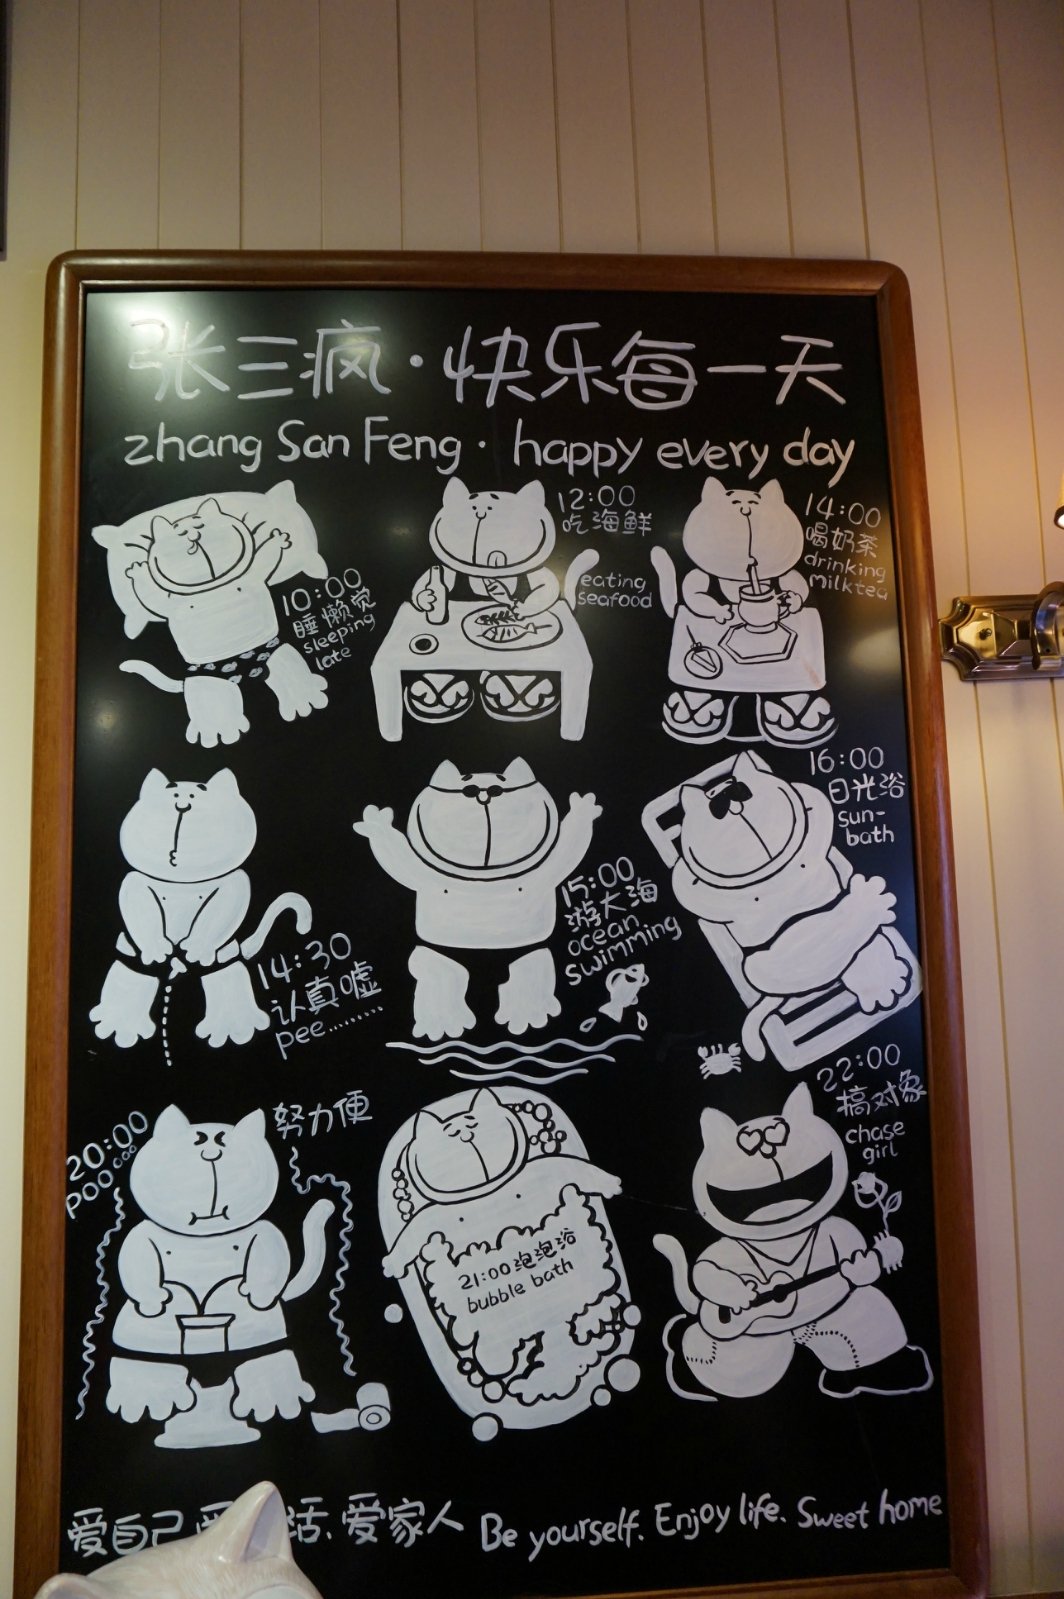 张三疯·快乐每一天
zhang San Feng · happy every day
10:00
睡懒觉
sleeping
late
12:00
吃海鲜
eating
seafood
14:00
喝奶茶
drinking
milktea
14:30
认真嘘
pee.........
15:00
游大海
ocean
swimming
16:00
日光浴
sun-
bath
20:00
poo
努力便
21:00泡泡浴
bubble bath
22:00
搞对象
chase
girl
爱自己 活、爱家人 Be yourself. Enjoy life. Sweet home